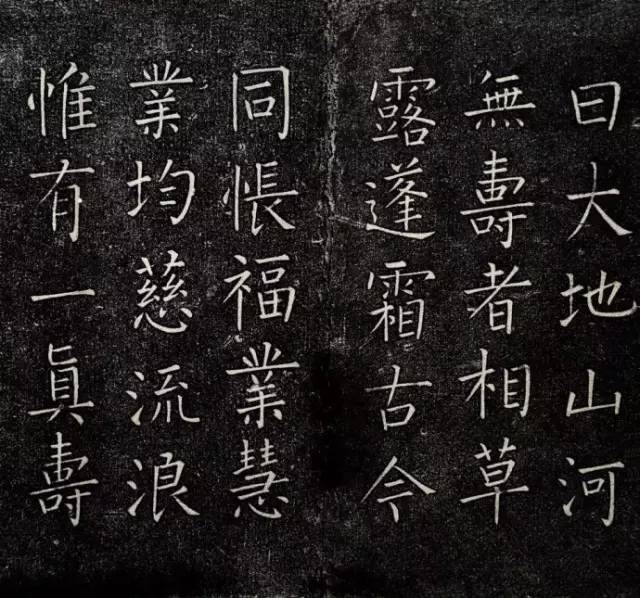 曰大地山河
無壽者相草
露蓬霜古今
同悵福業慧
業均慈流浪
惟有一眞壽